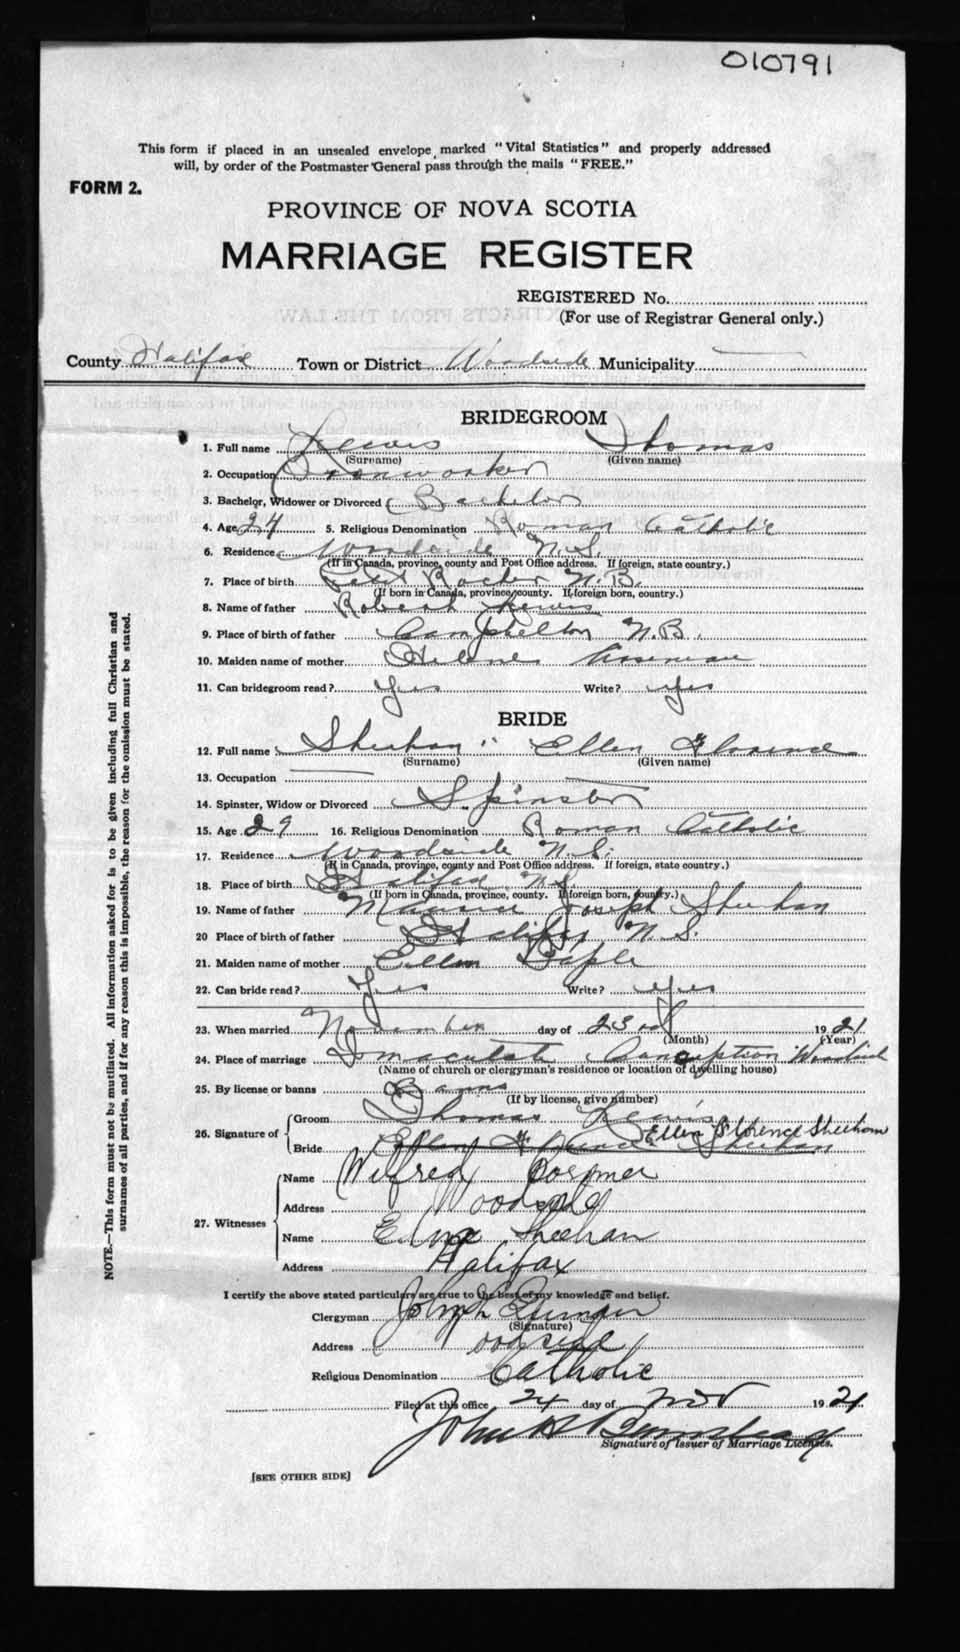 010791
This form if placed in an unsealed envelope marked "Vital Statistics" and properly addressed
will, by order of the Postmaster General pass through the mails "FREE."
FORM 2.
PROVINCE OF NOVA SCOTIA
MARRIAGE REGISTER
REGISTERED No.
(For use of Registrar General only.)
County Halifax Town or District Woodside Municipality
BRIDEGROOM
1. Full name Lewis Thomas
(Surname) (Given name)
2. Occupation Ironworker
3. Bachelor, Widower or Divorced Bachelor
4. Age 24 5. Religious Denomination Roman Catholic
6. Residence Woodside N.S.
(If in Canada, province, county and Post Office address. If foreign, state country.)
7. Place of birth Petit Rocher N.B.
(If born in Canada, province, county. If foreign born, country.)
8. Name of father Robert Lewis
9. Place of birth of father Campbellton N.B.
10. Maiden name of mother
11. Can bridegroom read? Yes Write? Yes
BRIDE
12. Full name Sheehan Ellen Florence
(Surname) (Given name)
13. Occupation
14. Spinster, Widow or Divorced Spinster
15. Age 29 16. Religious Denomination Roman Catholic
17. Residence Woodside N.S.
(If in Canada, province, county and Post Office address. If foreign, state country.)
18. Place of birth Halifax N.S.
(If born in Canada, province, county. If foreign born, country.)
19. Name of father Maurice Joseph Sheehan
20 Place of birth of father Halifax N.S.
21. Maiden name of mother Ellen
22. Can bride read? Yes Write? Yes
23. When married November day of 23rd 1921
(Month) (Year)
24. Place of marriage Imaculate Conception Woodside
(Name of church or clergyman's residence or location of dwelling house)
25. By license or banns Banns
(If by license, give number)
26. Signature of Groom Thomas Lewis
Ellen Florence Sheehan
Bride Ellen Florence Sheehan
27. Witnesses
Name Wilfred
Address Woodside
Name Sheehan
Address Halifax
I certify the above stated particulars are true to the best of my knowledge and belief.
Clergyman John
(Signature)
Address Woodside
Religious Denomination Catholic
Filed at this office 24 day of Nov 1921
John
Signature of Issuer of Marriage Licenses.
[SEE OTHER SIDE]
NOTE.—This form must not be mutilated. All information asked for is to be given including full Christian and
surnames of all parties, and if for any reason this is impossible, the reason for the omission must be stated.